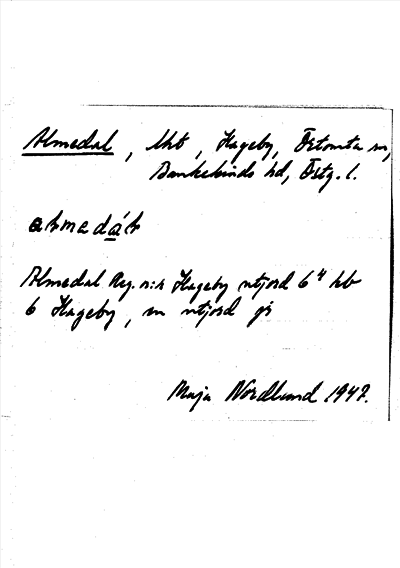 Almedal, lht, Hageby, Östomta sn,
Bankekinds hd, Östg. l.
almadál
Almedal Reg. n:r Hageby utjord 6⁴ hb
6 Hageby, en utjord jr
Maja Nordlund 1947.